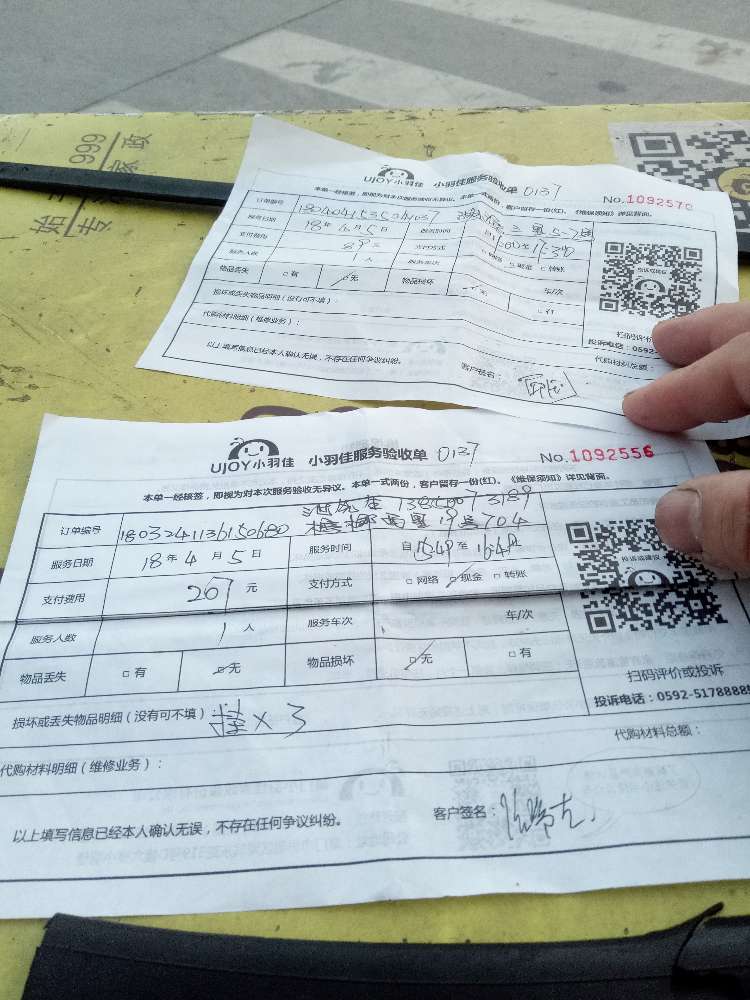 999
家政
UJOY小羽佳 小羽佳服务验收单 0137
No.1092570
本单一经核签，即视为对本次服务验收无异议。本单一式两份，客户留存一份(红)。《维保须知》详见背面。
订单编号
服务日期 18年4月5日 服务时间
支付费用 89元 支付方式 □网络 □现金 □转账
服务人数 1人 服务车次 车/次
物品丢失 □有 □无 物品损坏 □无 □有
损坏或丢失物品明细（没有可不填）：
代购材料明细（维修业务）： 代购材料总额：
以上填写信息已经本人确认无误，不存在任何争议纠纷。 客户签名：
投诉或建议
扫码评价
投诉电话：0592-
UJOY小羽佳 小羽佳服务验收单 0137
No.1092556
本单一经核签，即视为对本次服务验收无异议。本单一式两份，客户留存一份(红)。《维保须知》详见背面。
订单编号 1803241136150680 19 704
服务日期 18年4月5日 服务时间 自 至
支付费用 267元 支付方式 □网络 □现金 □转账
服务人数 1人 服务车次 车/次
物品丢失 □有 □无 物品损坏 □无 □有
损坏或丢失物品明细（没有可不填）： ×3
代购材料明细（维修业务）： 代购材料总额：
以上填写信息已经本人确认无误，不存在任何争议纠纷。 客户签名：
投诉或建议
扫码评价或投诉
投诉电话：0592-5178888